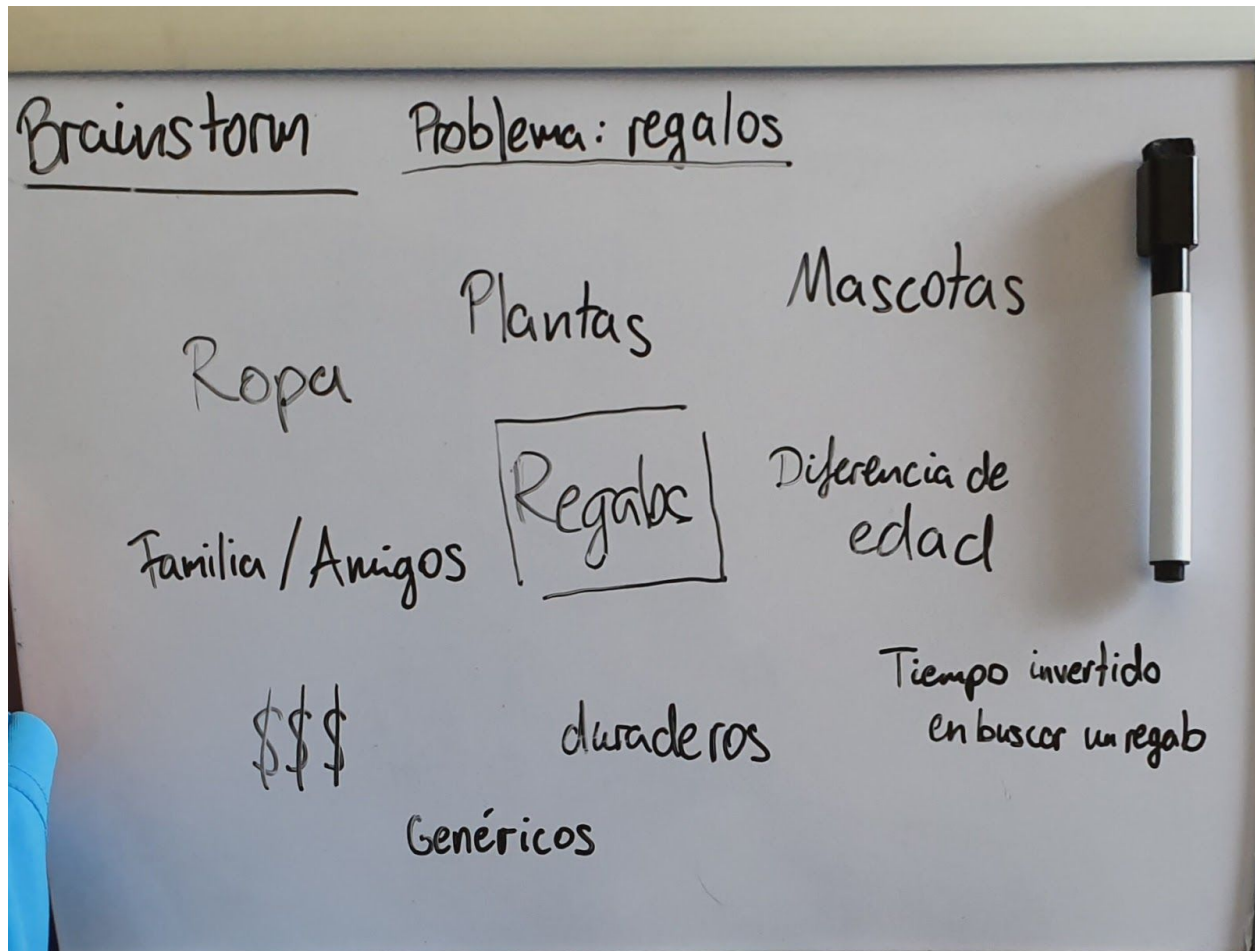 Brainstorm
Problema: regalos
Plantas
Mascotas
Ropa
Regalos
Diferencia de
edad
Familia / Amigos
Tiempo invertido
en buscar un regalo
$$$
duraderos
Genéricos